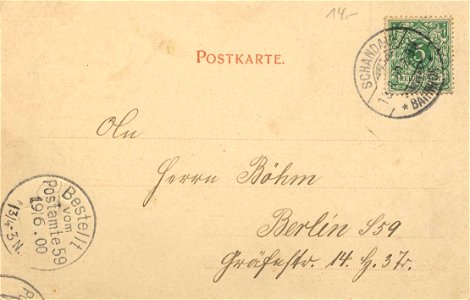 14.-
POSTKARTE.
SCHANDAU
* BAHNH
5
An
Herrn Böhm
Berlin S 59
Gräfestr. 14. H. 3 Tr.
Bestellt
vom
Postamte 59
19/6.00
1 3/4-3 N.